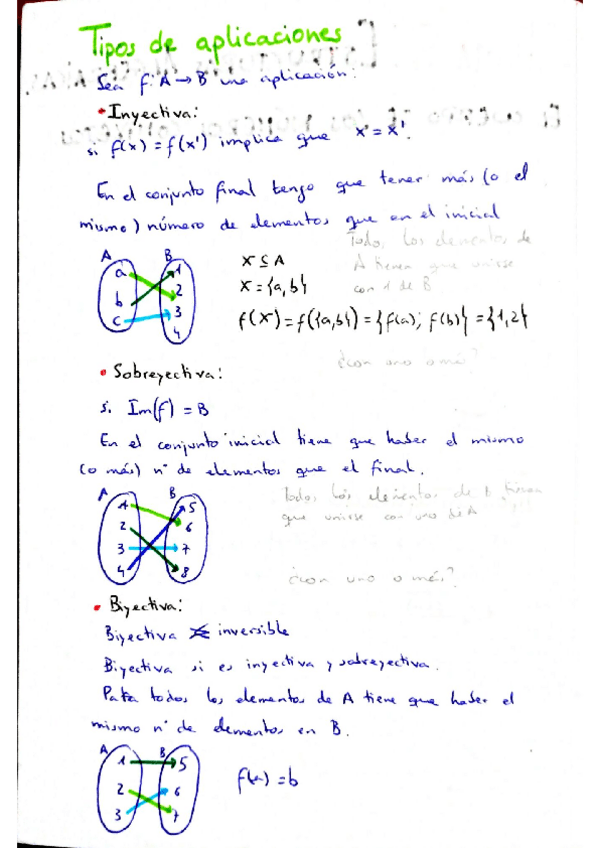 Tipos de aplicaciones
Sea f: A → B una aplicación:
• Inyectiva:
si f(x) = f(x') implica que x = x'.
En el conjunto final tengo que tener más (o el
mismo) número de elementos que en el inicial
Todos los elementos de
A tienen que unirse
con 1 de B
A B
a 1
b 2
c 3
4
X ⊆ A
X = {a,b}
f(X) = f({a,b}) = {f(a); f(b)} = {1,2}
¿con uno o más?
• Sobreyectiva:
si Im(f) = B
En el conjunto inicial tiene que haber el mismo
(o más) nº de elementos que el final.
A B
1 5
2 6
3 7
4 8
Todos los elementos de B tienen
que unirse con uno de A
¿con uno o más?
• Biyectiva:
Biyectiva inversible
Biyectiva si es inyectiva y sobreyectiva.
Para todos los elementos de A tiene que haber el
mismo nº de elementos en B.
A B
1 5
2 6
3 7
f(a) = b